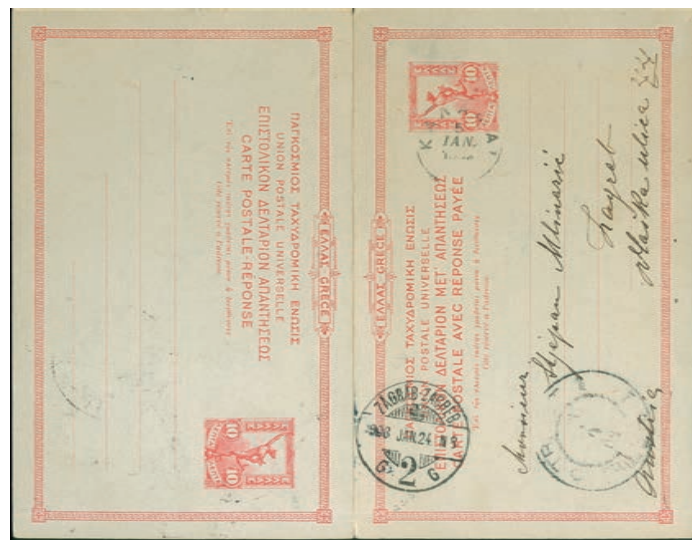 ΠΑΓΚΟΣΜΙΟΣ ΤΑΧΥΔΡΟΜΙΚΗ ΕΝΩΣΙΣ
UNION POSTALE UNIVERSELLE
ΕΠΙΣΤΟΛΙΚΟΝ ΔΕΛΤΑΡΙΟΝ ΑΠΑΝΤΗΣΕΩΣ
CARTE POSTALE-RÉPONSE
ΕΛΛΑΣ GRECE
10
10
ΕΛΛΑΣ GRECE
ΤΑΧΥΔΡΟΜΙΚΗ ΕΝΩΣΙΣ
POSTALE UNIVERSELLE
ΕΠΙΣΤΟΛΙΚΟΝ ΔΕΛΤΑΡΙΟΝ ΜΕΤ' ΑΠΑΝΤΗΣΕΩΣ
CARTE POSTALE AVEC RÉPONSE PAYÉE
10
10
JAN.
ZÁGRÁB-ZAGREB
JAN. 24
2
Monsieur
Stjepan Mlinarić
Zagreb
Vlaška ulica
Austria